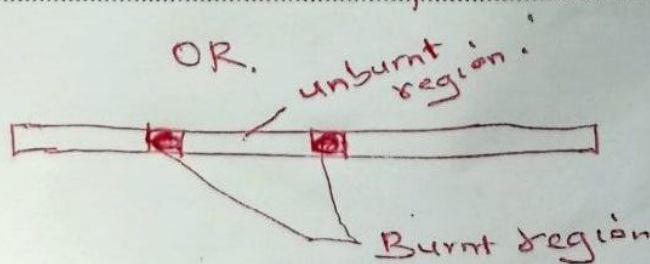 OR.
unburnt
región.
Burnt región